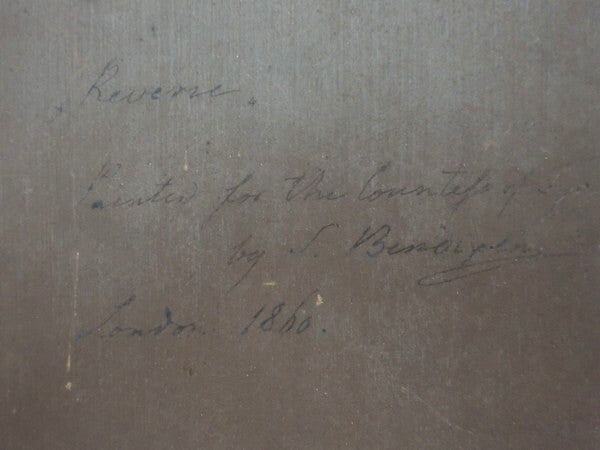 „Reverie„
Painted for the Countess of
by S. Bendixen
London 1860.